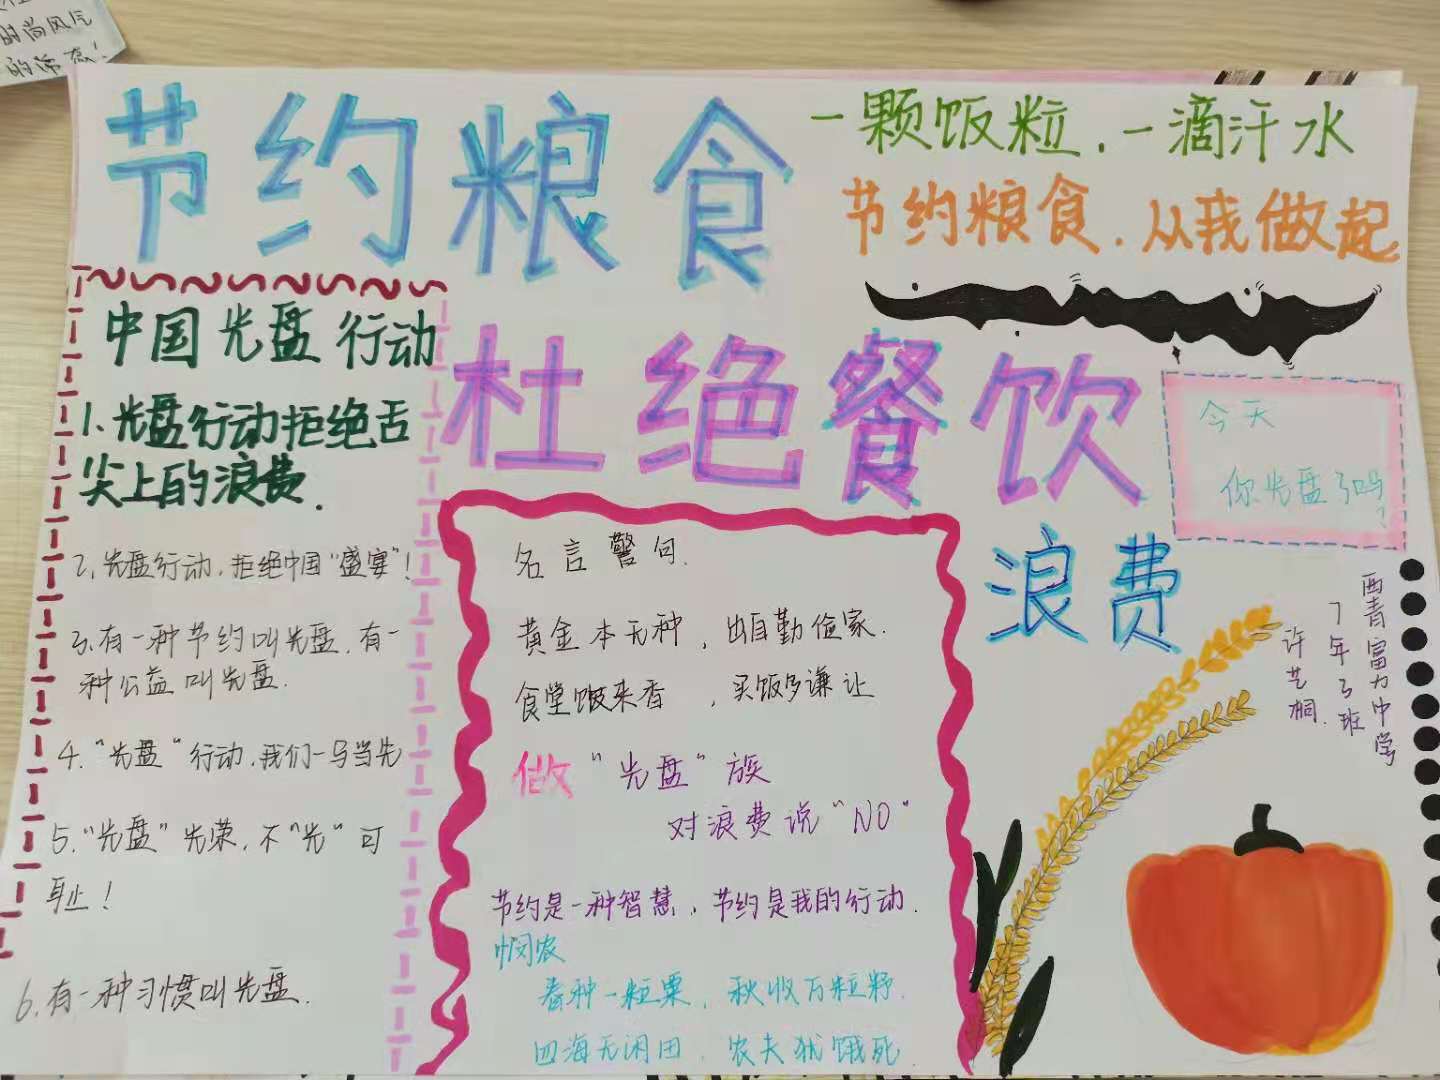 时尚风气
的活动！
节约粮食
一颗饭粒，一滴汗水
节约粮食，从我做起
杜绝餐饮
浪费
今天
你光盘了吗？
中国光盘行动
1、光盘行动拒绝舌
尖上的浪费．
2、光盘行动，拒绝中国“盛宴”！
3、有一种节约叫光盘，有一
种公益叫光盘．
4．“光盘”行动，我们一马当先
5．“光盘”光荣，不“光”可
耻！
6．有一种习惯叫光盘．
名言警句．
黄金本无种，出自勤俭家．
食堂饭来香，买饭多谦让
做“光盘”族
对浪费说“NO”
节约是一种智慧，节约是我的行动．
悯农
春种一粒粟，秋收万粒籽．
四海无闲田，农夫犹饿死．
西青富力中学
7年3班
许艺桐．